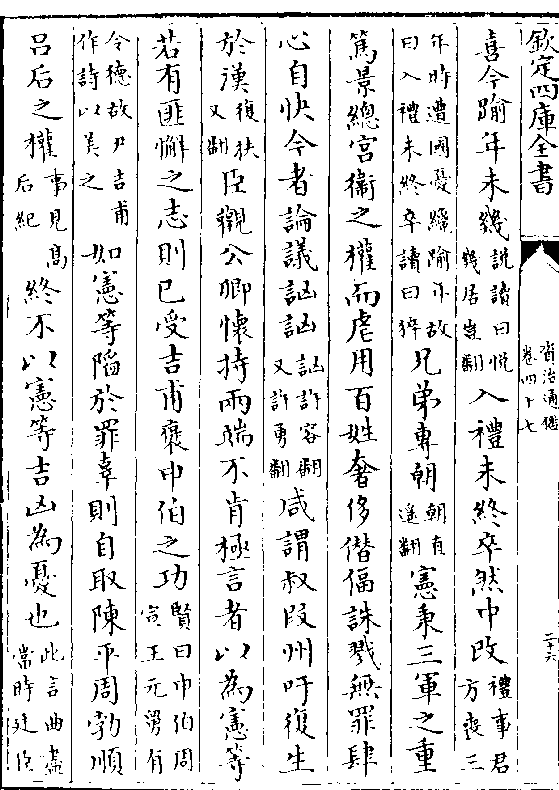 欽定四庫全書
資治通鑑
卷四十七
二十六
喜今踰年未幾說讀曰悅幾居豈翻入禮未終卒然中改禮事君方喪三
年時遭國憂纔踰年故曰入禮未終卒讀曰猝兄弟專朝朝直遥翻憲秉三軍之重
篤景總宫衞之權而虐用百姓奢侈僭偪誅戮無罪肆
心自快今者論議訩訩訩許容翻又許勇翻咸謂叔段州吁復生
於漢復扶又翻臣觀公卿懷持兩端不肯極言者以為憲等
若有匪懈之志則已受吉甫褒申伯之功賢曰申伯周宣王元舅有
令德故尹吉甫作詩以美之如憲等陷於罪辜則自取陳平周勃順
吕后之權事見高后紀終不以憲等吉凶為憂也此言曲盡當時廷臣